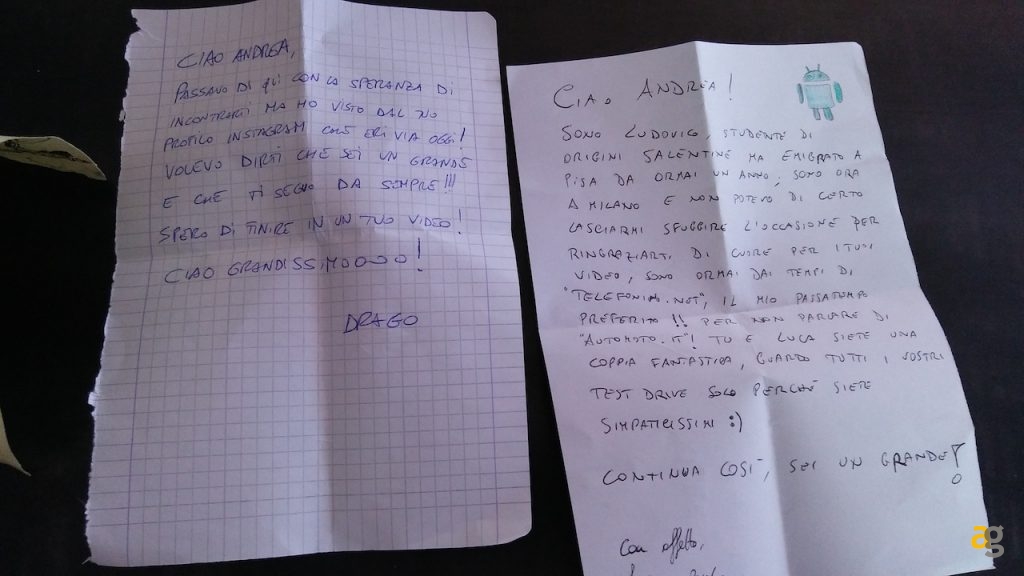 CIAO ANDREA,
PASSAVO DI QUI CON LA SPERANZA DI
INCONTRARTI MA HO VISTO DAL TUO
PROFILO INSTAGRAM CHE ERI VIA OGGI!
VOLEVO DIRTI CHE SEI UN GRANDE
E CHE TI SEGUO DA SEMPRE!!!
SPERO DI FINIRE IN UN TUO VIDEO!
CIAO GRANDISSIMOOOO!
DRAGO
CIAO ANDREA!
SONO LUDOVICO, STUDENTE DI
ORIGINI SALENTINE MA EMIGRATO A
PISA DA ORMAI UN ANNO, SONO ORA
A MILANO E NON POTEVO DI CERTO
LASCIARMI SFUGGIRE L'OCCASIONE PER
RINGRAZIARTI DI CUORE PER I TUOI
VIDEO, SONO ORMAI DAI TEMPI DI
"TELEFONINO.NET", IL MIO PASSATEMPO
PREFERITO!! PER NON PARLARE DI
"AUTOMOTO.IT"! TU E LUCA SIETE UNA
COPPIA FANTASTICA, GUARDO TUTTI I VOSTRI
TEST DRIVE SOLO PERCHÉ SIETE
SIMPATICISSIMI :)
CONTINUA COSÌ, SEI UN GRANDE!
Con affetto,
ag